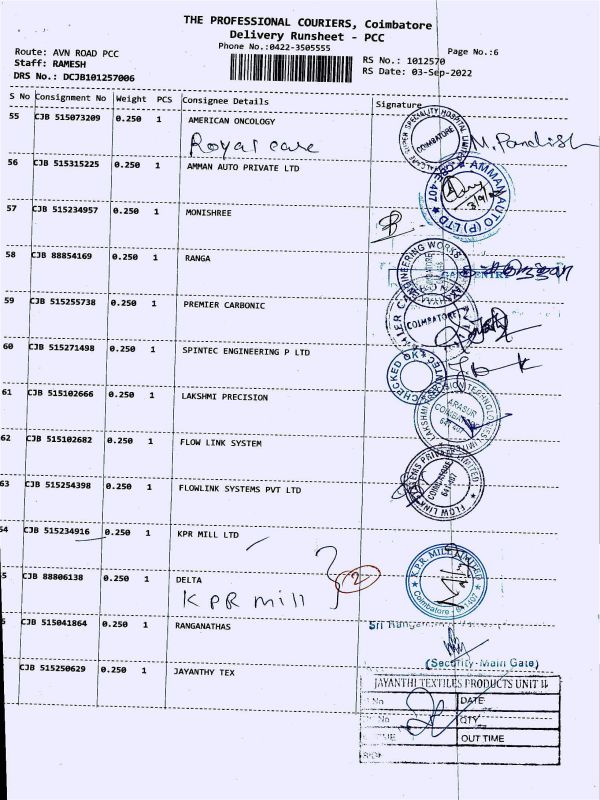 THE PROFESSIONAL COURIERS, Coimbatore
Delivery Runsheet - PCC
Phone No.:0422-3505555
Page No.:6
Route: AVN ROAD PCC
Staff: RAMESH
DRS No.: DCJB101257006
RS No.: 1012570
RS Date: 03-Sep-2022
S No Consignment No Weight PCS Consignee Details Signature
55 CJB 515073209 0.250 1 AMERICAN ONCOLOGY
Royal care
M. Pandish
COIMBATORE
56 CJB 515315225 0.250 1 AMMAN AUTO PRIVATE LTD
AMMAN AUTO (P) LTD
57 CJB 515234957 0.250 1 MONISHREE
58 CJB 88854169 0.250 1 RANGA
ENGINEERING WORKS
59 CJB 515255738 0.250 1 PREMIER CARBONIC
COIMBATORE
60 CJB 515271498 0.250 1 SPINTEC ENGINEERING P LTD
CHECKED OK
61 CJB 515102666 0.250 1 LAKSHMI PRECISION
LAKSHMI PRECISION TECHNOLOGIES LIMITED
ARASUR
COIMBATORE
641407
62 CJB 515102682 0.250 1 FLOW LINK SYSTEM
FLOW LINK SYSTEMS PRIVATE LIMITED
COIMBATORE
641407
63 CJB 515254398 0.250 1 FLOWLINK SYSTEMS PVT LTD
54 CJB 515234916 0.250 1 KPR MILL LTD
K.P.R. MILL LIMITED
Coimbatore - 641407
5 CJB 88806138 0.250 1 DELTA
2
KPR mill
CJB 515041864 0.250 1 RANGANATHAS
Sri
(Security-Main Gate)
CJB 515250629 0.250 1 JAYANTHY TEX
JAYANTHI TEXTILES PRODUCTS UNIT II
No DATE
No QTY
OUT TIME